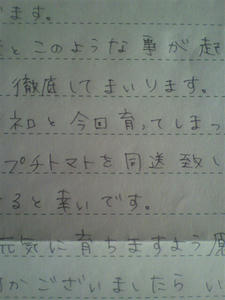 ます。
とこのような事が起
徹底してまいります。
ネロと今回育ってしまっ
プチトマトを同送致し
ると幸いです。
元気に育ちますよう願
かございましたら い